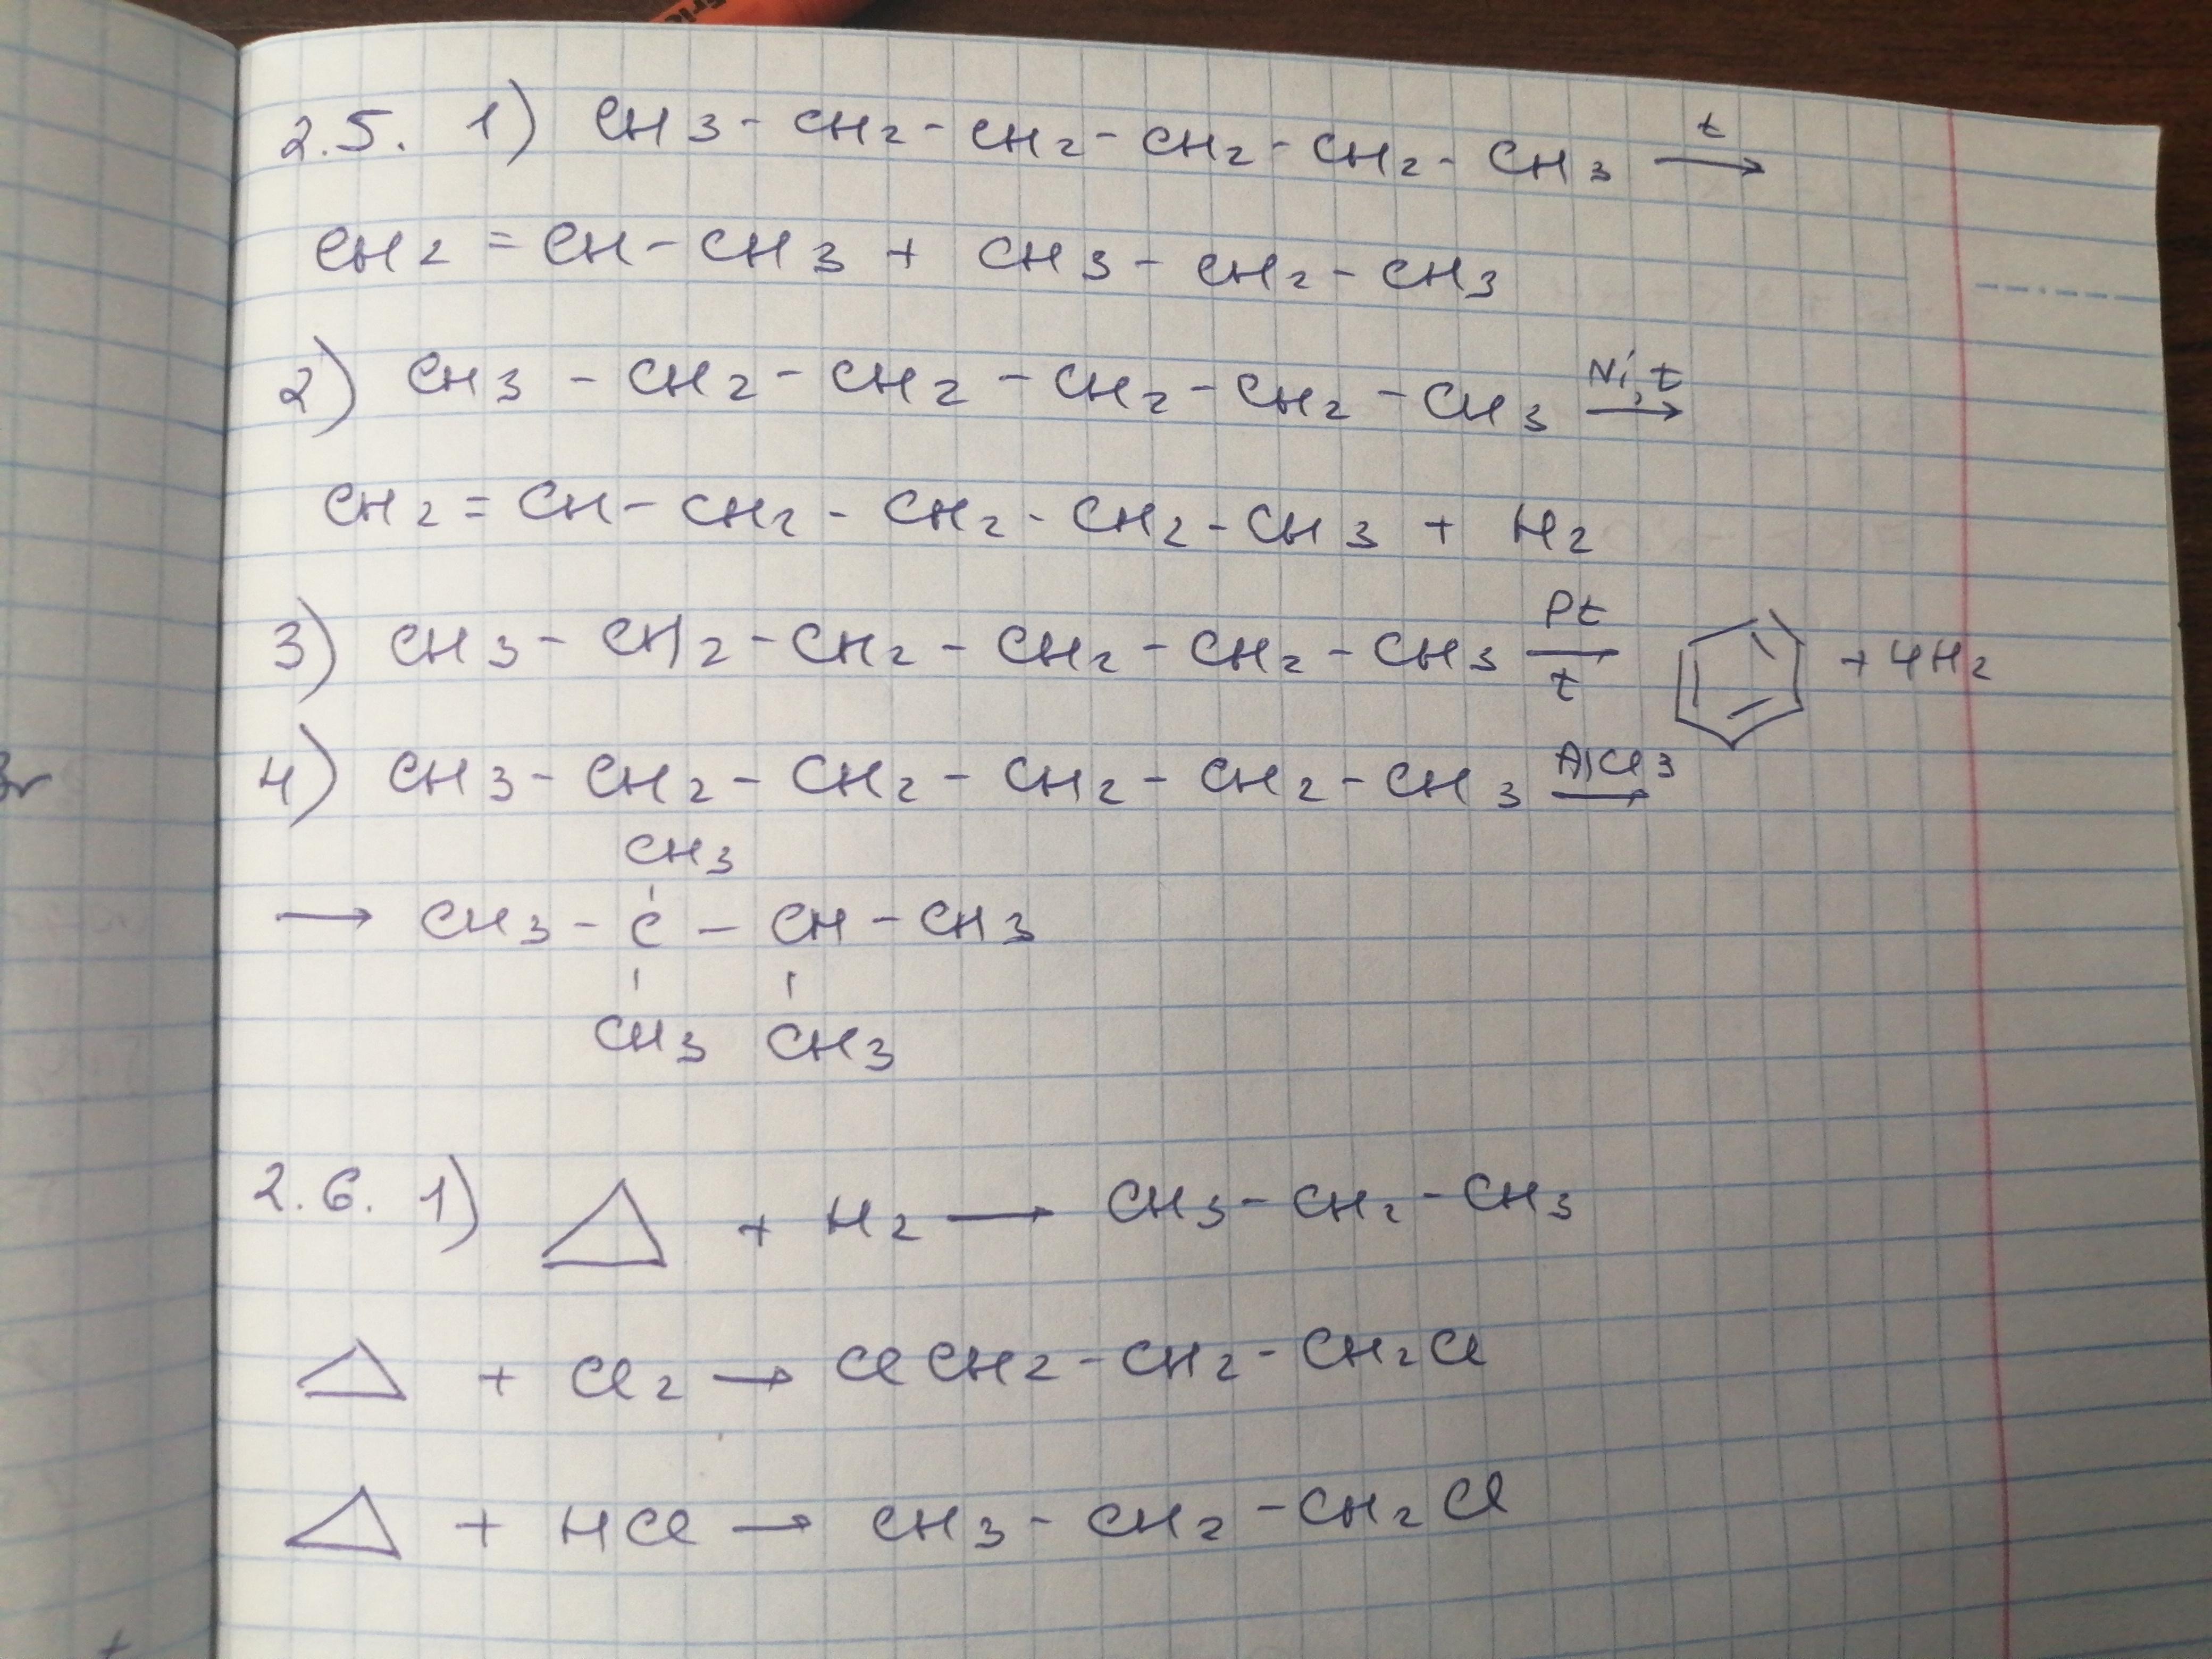 2.5. 1) CH3 - CH2 - CH2 - CH2 - CH2 - CH3 t→
CH2 = CH - CH3 + CH3 - CH2 - CH3
2) CH3 - CH2 - CH2 - CH2 - CH2 - CH3 Ni, t→
CH2 = CH - CH2 - CH2 - CH2 - CH3 + H2
3) CH3 - CH2 - CH2 - CH2 - CH2 - CH3 Pt→ + 4H2
t
4) CH3 - CH2 - CH2 - CH2 - CH2 - CH3 AlCl3→
CH3
→ CH3 - C - CH - CH3
CH3 CH3
2.6. 1) + H2 → CH3 - CH2 - CH3
+ Cl2 → ClCH2 - CH2 - CH2Cl
+ HCl → CH3 - CH2 - CH2Cl